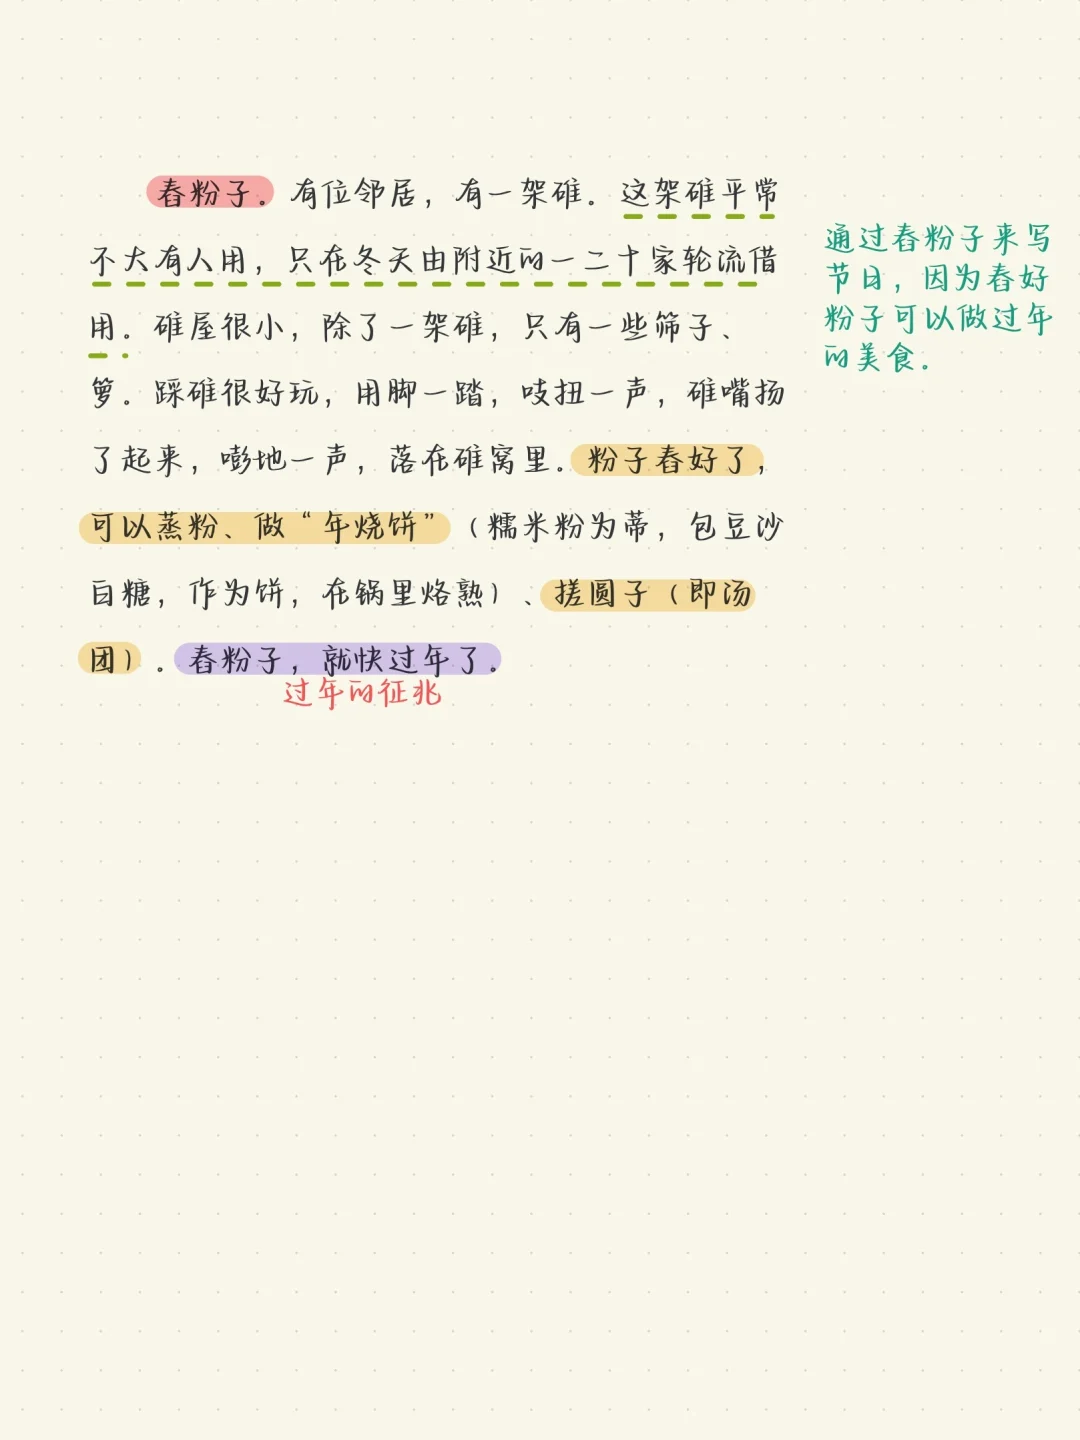 舂粉子。有位邻居，有一架碓。这架碓平常
不大有人用，只在冬天由附近的一二十家轮流借
用。碓屋很小，除了一架碓，只有一些筛子、
箩。踩碓很好玩，用脚一踏，吱扭一声，碓嘴扬
了起来，嘭地一声，落在碓窝里。粉子舂好了，
可以蒸粉、做“年烧饼”（糯米粉为蒂，包豆沙
白糖，作为饼，在锅里烙熟）、搓圆子（即汤
团）。舂粉子，就快过年了。
过年的征兆
通过舂粉子来写
节日，因为舂好
粉子可以做过年
的美食。